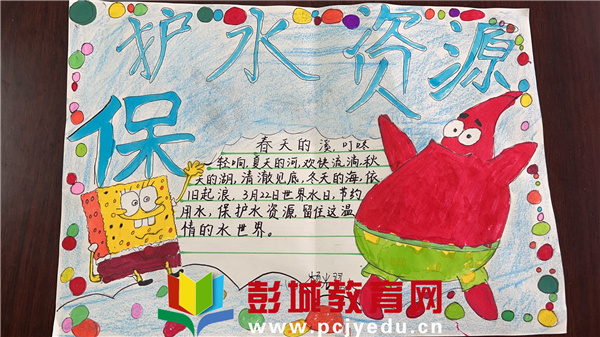 保护水资源
春天的溪,叮咚
轻响,夏天的河,欢快流淌,秋
天的湖,清澈见底,冬天的海,依
旧起浪。3月22日世界水日,节约
用水,保护水资源,留住这温
情的水世界。
彭城教育网
www.pcjyedu.cn